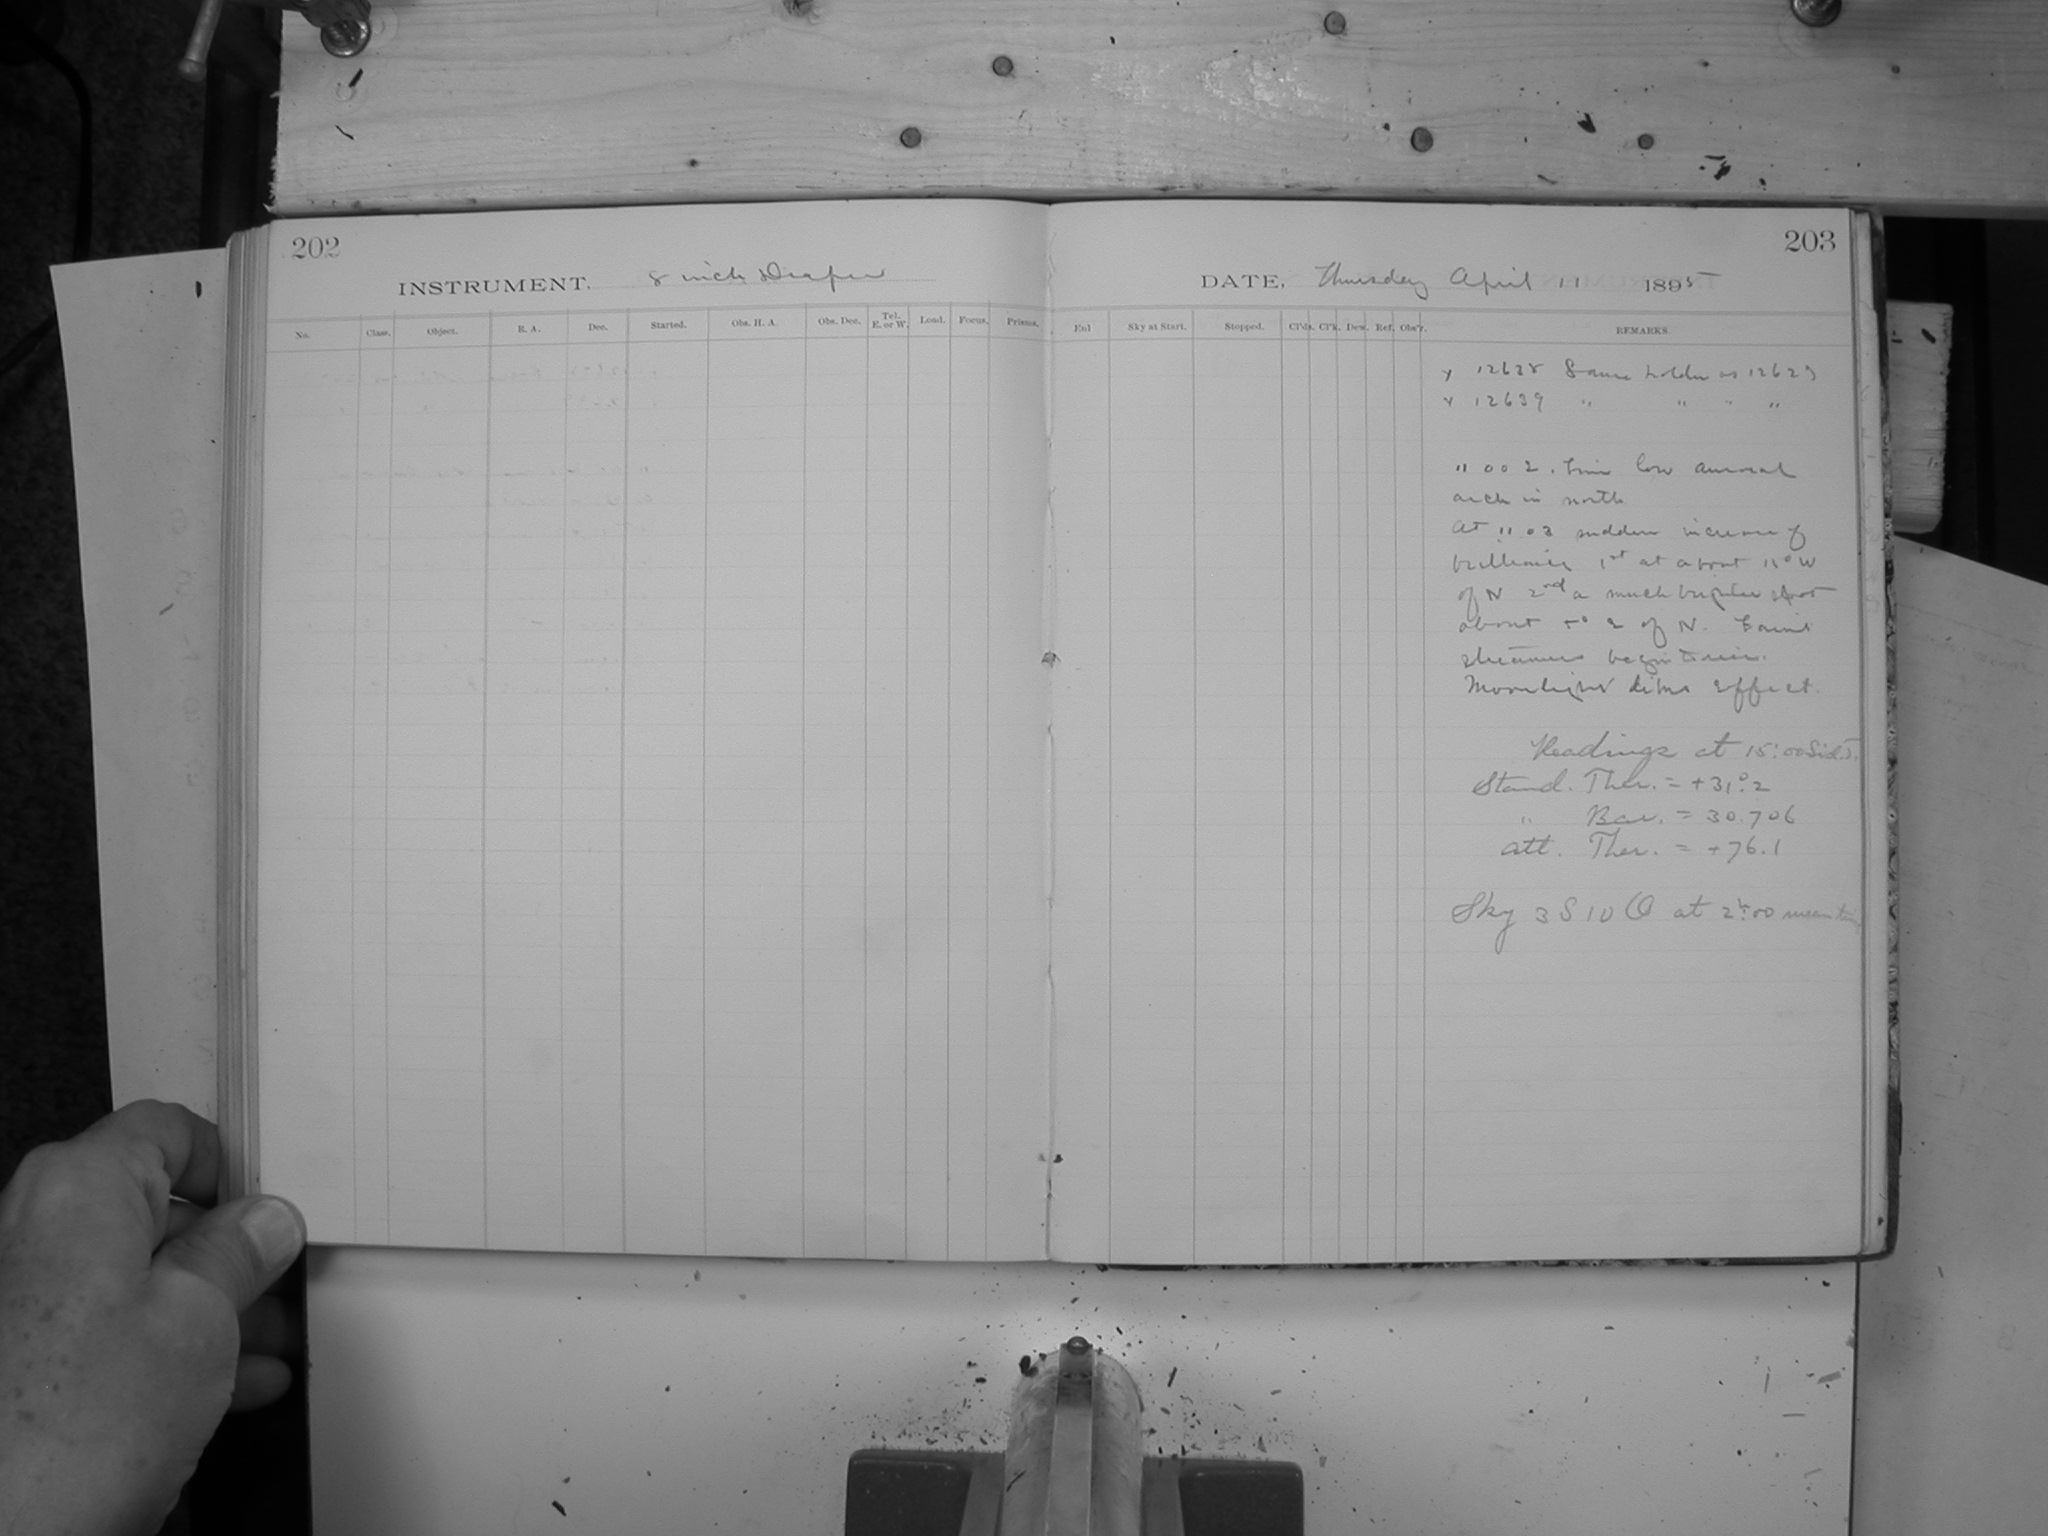 202
203
INSTRUMENT. 8 inch Draper
DATE, Thursday April 11 1895
No. Class. Object. R. A. Dec. Started. Obs. H. A. Obs. Dec. Tel. E. or W. Load. Focus. Prisms. Sky at Start. Stopped. Cl'ds. Cl'k. Dew. Ref. Obs'r. REMARKS.
x 12638 Same holder as 12629
x 12639 " " " "
11 00 2. low auroral
arch in north
At 11 03 sudden increase of
brilliancy 1st at about W
of N 2nd a much brighter spot
about of N. Faint
streamers begin to
Moonlight dims effect.
Readings at 15:00 Sid. T.
Stand. Ther. = +31°.2
" Bar. = 30.706
Att. Ther. = +76.1
Sky 3 S 10 at 2h.00 mean time